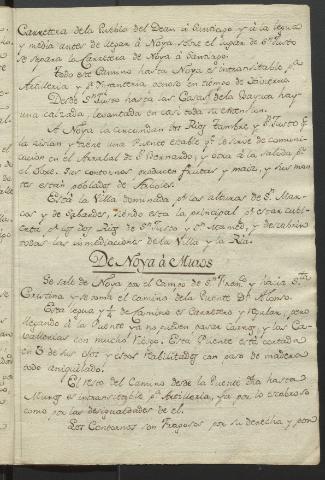 Carretera de la Puebla del Dean á Santiago y á la legua
y media antes de llegar á Noya sobre el lugar de Sn. Justo
se separa la Carretera de Noya á Santiago.
Todo este Camino hasta Noya es intransitable pa.
Artilleria y pa. Ynfanteria, penoso en tiempo de Ybierno.
Desde Sn. Justo hasta las Casas de la hay
una calzada, levantada en casi toda su extension.
A Noya la circundan dos Rios Tambre y Sn. Justo qe.
la aislan y tiene una Puente estable pa. le sirve de comuni-
cacion en el Arrabal de Sn. Bernardo, y otra á la salida pa.
el Soxe. Sus contornos producen frutas y maiz, y sus mon
tes están poblados de Arboles.
Está la Villa dominada pr. las alturas de Sn. Mar-
cos y de siendo esta la principal pr. estar cubi-
erta pr. los dos Rios de Sn. Justo y Sn. Mamed, y descubrir
todas las inmediaciones de la Villa y la Ria.
De Noya á Muros
Se sale de Noya por el Campo de Sn. Franco. y hacia Sta.
Cristina y se toma el camino de la Puente Dn. Alonso.
Esta legua y ¼ de Camino es Carretero y regular, pero
llegando á la Puente ya no pueden pasar Carros, y las Ca-
ballerias con mucho riesgo. Esta Puente está cortada
en 3 de sus ojos y esos habilitados con paso de madera
todo aniquilado.
El resto del Camino desde la Puente dha hasta
Muros es intransitable pa. Artilleria, ya por lo escabroso
como por las desigualdades de el.
Los Contornos son fragosos por su derecha y por